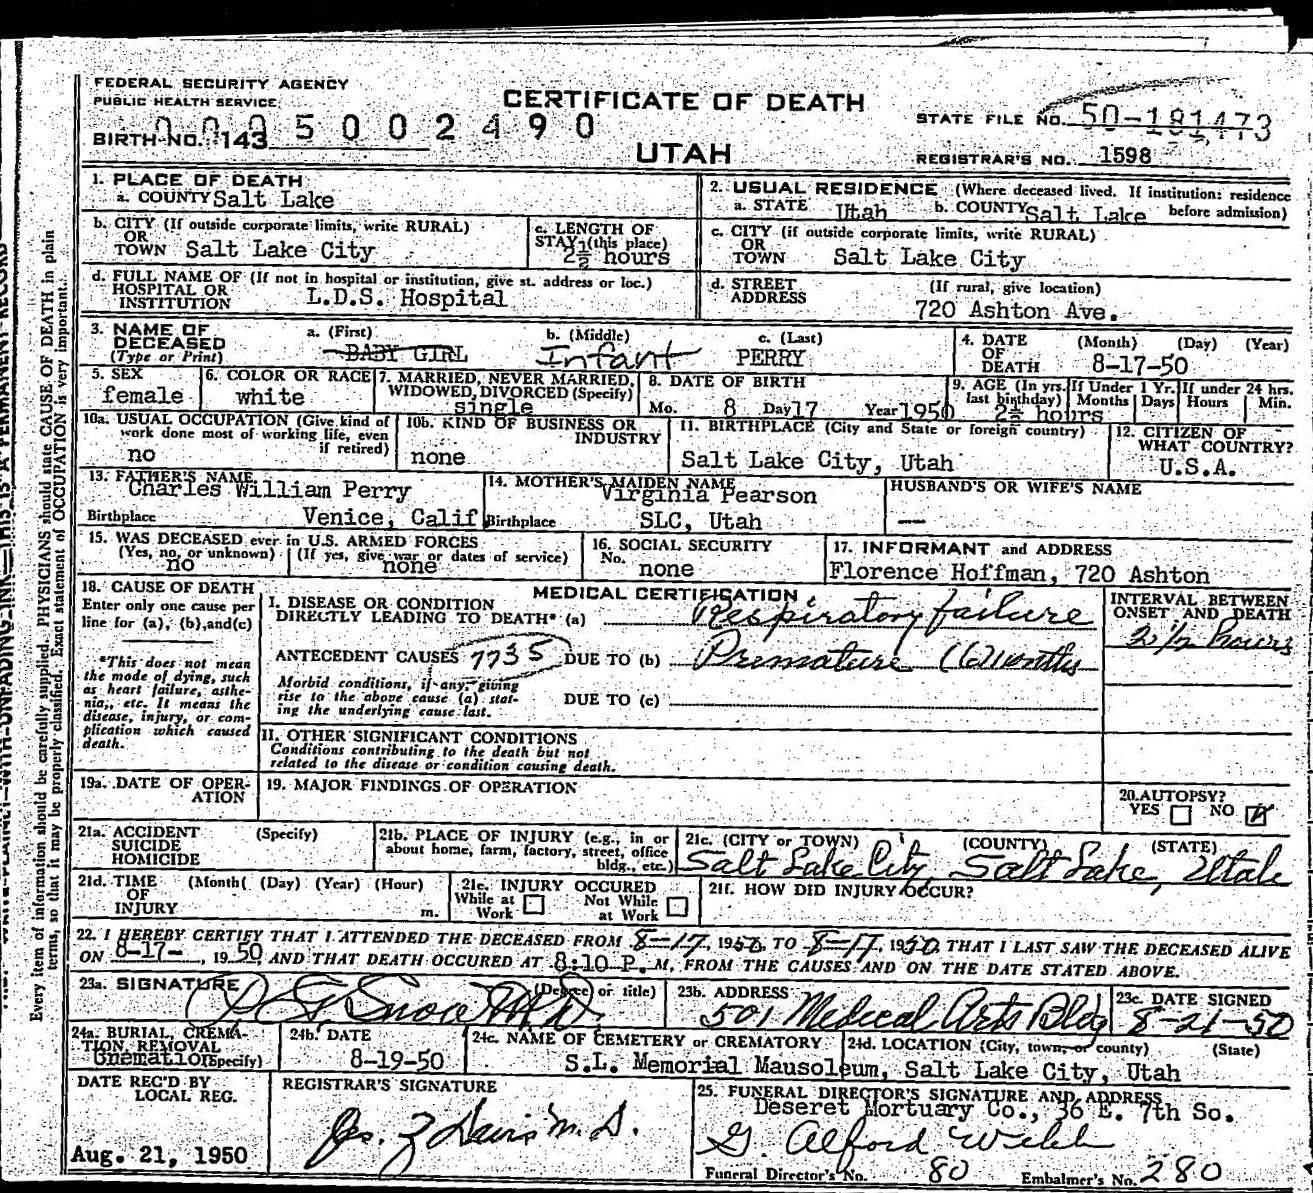 FEDERAL SECURITY AGENCY
PUBLIC HEALTH SERVICE
BIRTH NO. 143
0005002490
CERTIFICATE OF DEATH
UTAH
STATE FILE NO. 50-181473
REGISTRAR'S NO. 1598
1. PLACE OF DEATH
a. COUNTY Salt Lake
b. CITY (If outside corporate limits, write RURAL)
OR
TOWN Salt Lake City
c. LENGTH OF
STAY (this place)
2½ hours
d. FULL NAME OF (If not in hospital or institution, give st. address or loc.)
HOSPITAL OR
INSTITUTION L.D.S. Hospital
2. USUAL RESIDENCE (Where deceased lived. If institution: residence
before admission)
a. STATE Utah b. COUNTY Salt Lake
c. CITY (if outside corporate limits, write RURAL)
OR
TOWN Salt Lake City
d. STREET (If rural, give location)
ADDRESS 720 Ashton Ave.
3. NAME OF
DECEASED
(Type or Print)
a. (First) BABY GIRL
b. (Middle) Infant
c. (Last) PERRY
4. DATE (Month) (Day) (Year)
OF
DEATH 8-17-50
5. SEX
female
6. COLOR OR RACE
white
7. MARRIED, NEVER MARRIED,
WIDOWED, DIVORCED (Specify)
single
8. DATE OF BIRTH
Mo. 8 Day 17 Year 1950
9. AGE (In yrs. last birthday) If Under 1 Yr. Months Days If under 24 hrs. Hours Min.
2½ hours
10a. USUAL OCCUPATION (Give kind of
work done most of working life, even
if retired)
no
10b. KIND OF BUSINESS OR
INDUSTRY
none
11. BIRTHPLACE (City and State or foreign country)
Salt Lake City, Utah
12. CITIZEN OF
WHAT COUNTRY?
U.S.A.
13. FATHER'S NAME
Charles William Perry
Birthplace Venice, Calif
14. MOTHER'S MAIDEN NAME
Virginia Pearson
Birthplace SLC, Utah
HUSBAND'S OR WIFE'S NAME
—
15. WAS DECEASED ever in U.S. ARMED FORCES
(Yes, no, or unknown) (If yes, give war or dates of service)
no none
16. SOCIAL SECURITY
No. none
17. INFORMANT and ADDRESS
Florence Hoffman, 720 Ashton
18. CAUSE OF DEATH
Enter only one cause per
line for (a), (b), and (c)
*This does not mean
the mode of dying, such
as heart failure, asthe-
nia, etc. It means the
disease, injury, or com-
plication which caused
death.
MEDICAL CERTIFICATION
I. DISEASE OR CONDITION
DIRECTLY LEADING TO DEATH* (a) Respiratory failure
ANTECEDENT CAUSES 7735 DUE TO (b) Premature (6) months
Morbid conditions, if any, giving
rise to the above cause (a) stat-
ing the underlying cause last.
DUE TO (c)
II. OTHER SIGNIFICANT CONDITIONS
Conditions contributing to the death but not
related to the disease or condition causing death.
INTERVAL BETWEEN
ONSET AND DEATH
2 1/2 hours
19a. DATE OF OPER-
ATION
19. MAJOR FINDINGS OF OPERATION
20. AUTOPSY?
YES NO
21a. ACCIDENT (Specify)
SUICIDE
HOMICIDE
21b. PLACE OF INJURY (e.g., in or
about home, farm, factory, street, office
bldg., etc.)
21c. (CITY or TOWN) (COUNTY) (STATE)
Salt Lake City, Salt Lake, Utah
21d. TIME (Month) (Day) (Year) (Hour)
OF
INJURY m.
21e. INJURY OCCURED
While at Work Not While at Work
21f. HOW DID INJURY OCCUR?
22. I HEREBY CERTIFY THAT I ATTENDED THE DECEASED FROM 8-17, 1950, TO 8-17, 1950. THAT I LAST SAW THE DECEASED ALIVE
ON 8-17-, 1950 AND THAT DEATH OCCURED AT 8:10 P. M, FROM THE CAUSES AND ON THE DATE STATED ABOVE.
23a. SIGNATURE (Degree or title)
Snow MD
23b. ADDRESS
501 Medical Arts Bldg
23c. DATE SIGNED
8-21-50
24a. BURIAL, CREMA-
TION, REMOVAL
(Specify)
Cremation
24b. DATE
8-19-50
24c. NAME OF CEMETERY or CREMATORY
S.L. Memorial Mausoleum,
24d. LOCATION (City, town, or county) (State)
Salt Lake City, Utah
DATE REC'D BY
LOCAL REG.
Aug. 21, 1950
REGISTRAR'S SIGNATURE
Davis M. D.
25. FUNERAL DIRECTOR'S SIGNATURE AND ADDRESS
Deseret Mortuary Co., 36 E. 7th So.
G. Alford Webb
Funeral Director's No. 80 Embalmer's No. 280
Every item of information should be carefully supplied. PHYSICIANS should state CAUSE OF DEATH in plain
terms, so that it may be properly classified. Exact statement of OCCUPATION is very important.
WRITE PLAINLY WITH UNFADING INK—THIS IS A PERMANENT RECORD